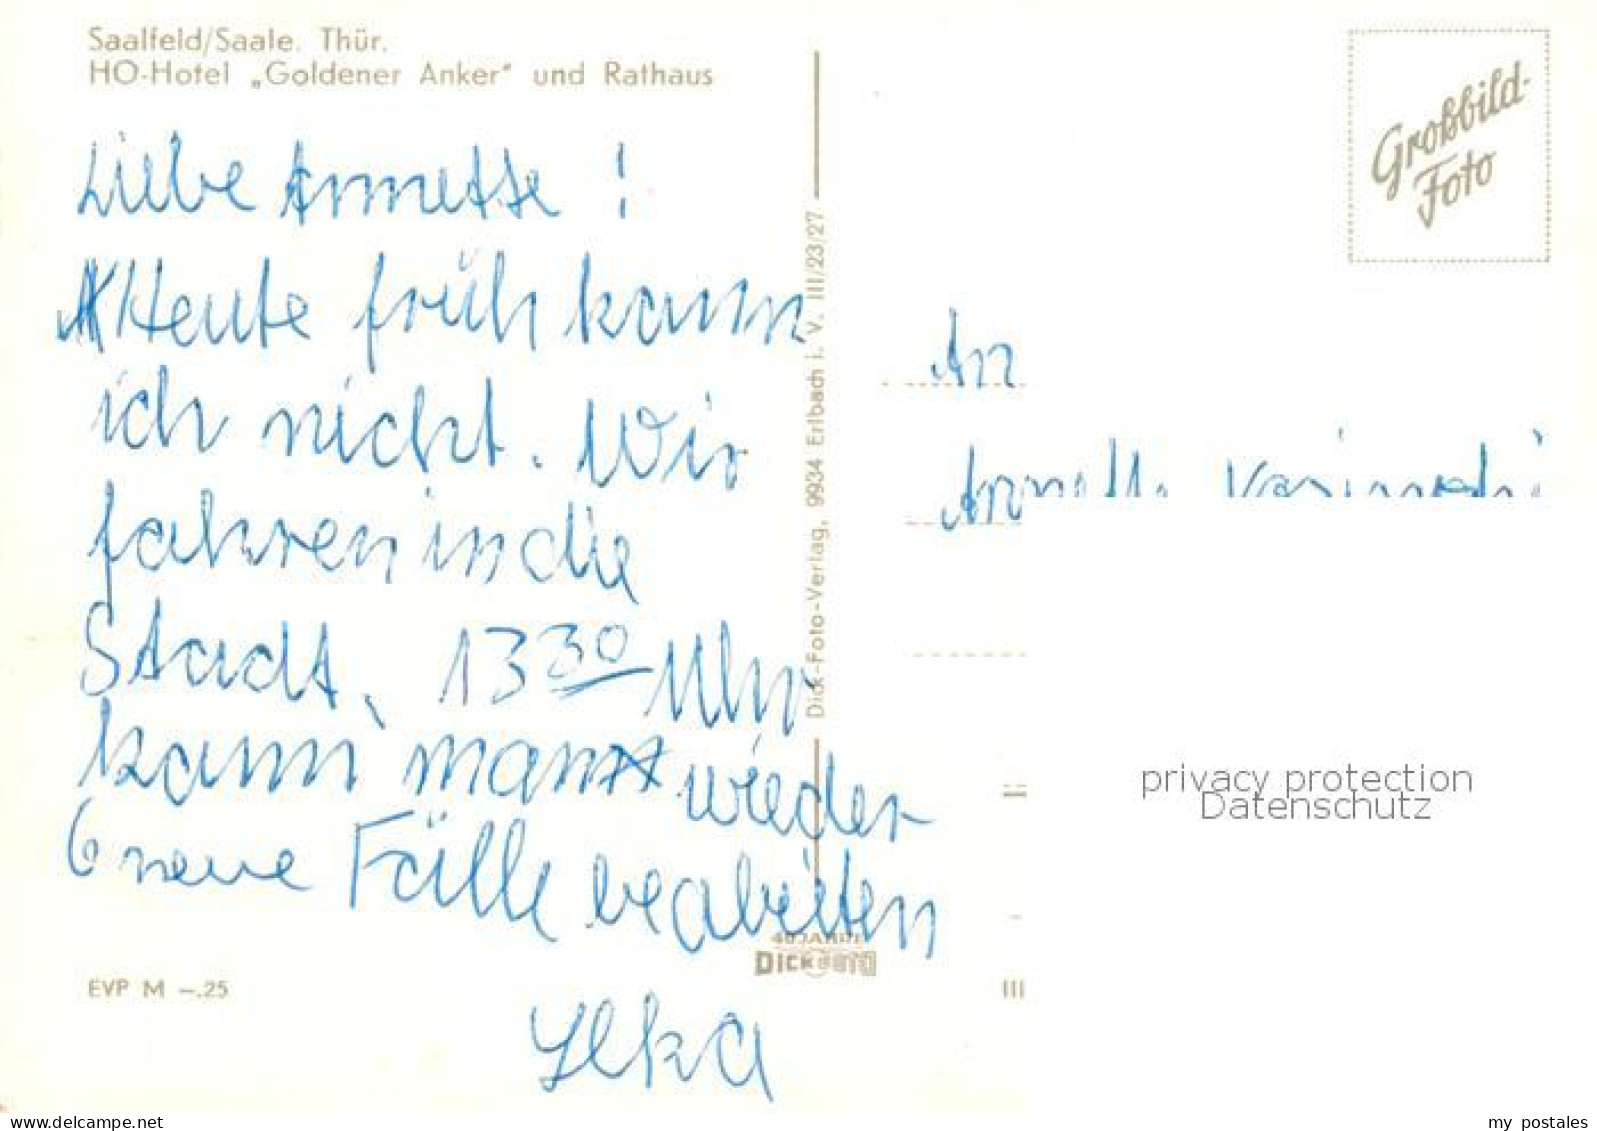 Saalfeld/Saale. Thür.
HO-Hotel „Goldener Anker" und Rathaus
Liebe Annette !
Heute früh kann
ich nicht. Wir
fahren in die
Stadt, 13 30 Uhr
kann man wieder
6 neue Fälle beabeiten
Ilka
EVP M –.25
Dick-Foto-Verlag, 9934 Erlbach i. V. III/23/27
40 JAHRE
DICK FOTO
Großbild-
Foto
An
Annette
III
privacy protection
Datenschutz
www.delcampe.net
my_postales